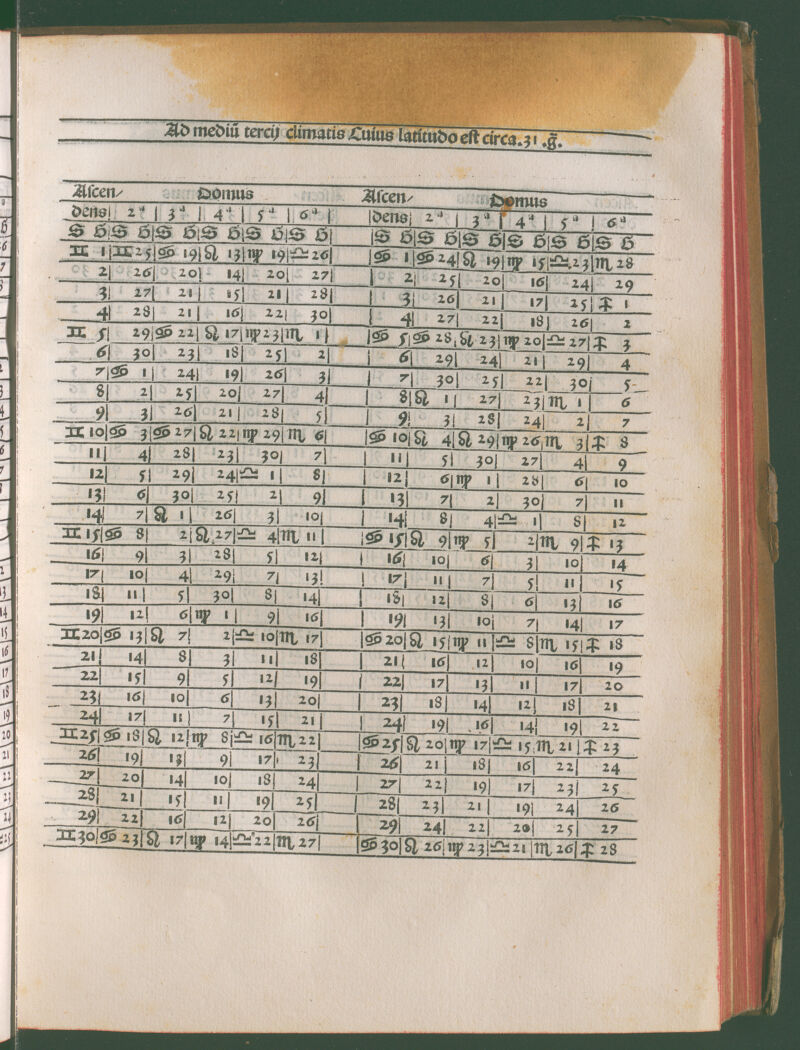 Ad mediũ tercij climatis Cuius latitudo est circa.31.g̃.
Ascen/ Domus Ascen/ Domus
dens| 2ª | 3ª | 4ª | 5ª | 6ª |dens| 2ª | 3ª | 4ª | 5ª | 6ª
S G|S G|S G|S G|S G|S G| |S G|S G|S G|S G|S G|S G
♊ 1|♊ 25|♋ 19|♌ 13|♍ 19|♎ 26 |♋ 1|♋ 24|♌ 19|♍ 15|♎ 23|♏ 28
2| 26| 20| 14| 20| 27 | 2| 25| 20| 16| 24| 29
3| 27| 21| 15| 21| 28 | 3| 26| 21| 17| 25|♐ 1
4| 28| 21| 16| 22| 30 | 4| 27| 22| 18| 26| 2
♊ 5| 29|♋ 22|♌ 17|♍ 23|♏ 1| |♋ 5|♋ 28|♌ 23|♍ 20|♎ 27|♐ 3
6| 30| 23| 18| 25| 2| | 6| 29| 24| 21| 29| 4
7|♋ 1| 24| 19| 26| 3| | 7| 30| 25| 22| 30| 5
8| 2| 25| 20| 27| 4| | 8|♌ 1| 27| 23|♏ 1| 6
9| 3| 26| 21| 28| 5| | 9| 3| 28| 24| 2| 7
♊ 10|♋ 3|♋ 27|♌ 22|♍ 29|♏ 6| |♋ 10|♌ 4|♌ 29|♍ 26|♏ 3|♐ 8
11| 4| 28| 23| 30| 7| | 11| 5| 30| 27| 4| 9
12| 5| 29| 24|♎ 1| 8| | 12| 6|♍ 1| 28| 6| 10
13| 6| 30| 25| 2| 9| | 13| 7| 2| 30| 7| 11
14| 7|♌ 1| 26| 3| 10| | 14| 8| 4|♎ 1| 8| 12
♊ 15|♋ 8| 2|♌ 27|♎ 4|♏ 11| |♋ 15|♌ 9|♍ 5| 2|♏ 9|♐ 13
16| 9| 3| 28| 5| 12| | 16| 10| 6| 3| 10| 14
17| 10| 4| 29| 7| 13| | 17| 11| 7| 5| 11| 15
18| 11| 5| 30| 8| 14| | 18| 12| 8| 6| 13| 16
19| 12| 6|♍ 1| 9| 16| | 19| 13| 10| 7| 14| 17
♊ 20|♋ 13|♌ 7| 2|♎ 10|♏ 17| |♋ 20|♌ 15|♍ 11|♎ 8|♏ 15|♐ 18
21| 14| 8| 3| 11| 18| | 21| 16| 12| 10| 16| 19
22| 15| 9| 5| 12| 19| | 22| 17| 13| 11| 17| 20
23| 16| 10| 6| 13| 20| | 23| 18| 14| 12| 18| 21
24| 17| 11| 7| 15| 21| | 24| 19| 16| 14| 19| 22
♊ 25|♋ 18|♌ 12|♍ 8|♎ 16|♏ 22| |♋ 25|♌ 20|♍ 17|♎ 15|♏ 21|♐ 23
26| 19| 13| 9| 17| 23| | 26| 21| 18| 16| 22| 24
27| 20| 14| 10| 18| 24| | 27| 22| 19| 17| 23| 25
28| 21| 15| 11| 19| 25| | 28| 23| 21| 19| 24| 26
29| 22| 16| 12| 20| 26| | 29| 24| 22| 20| 25| 27
♊ 30|♋ 23|♌ 17|♍ 14|♎ 22|♏ 27| |♋ 30|♌ 26|♍ 23|♎ 21|♏ 26|♐ 28